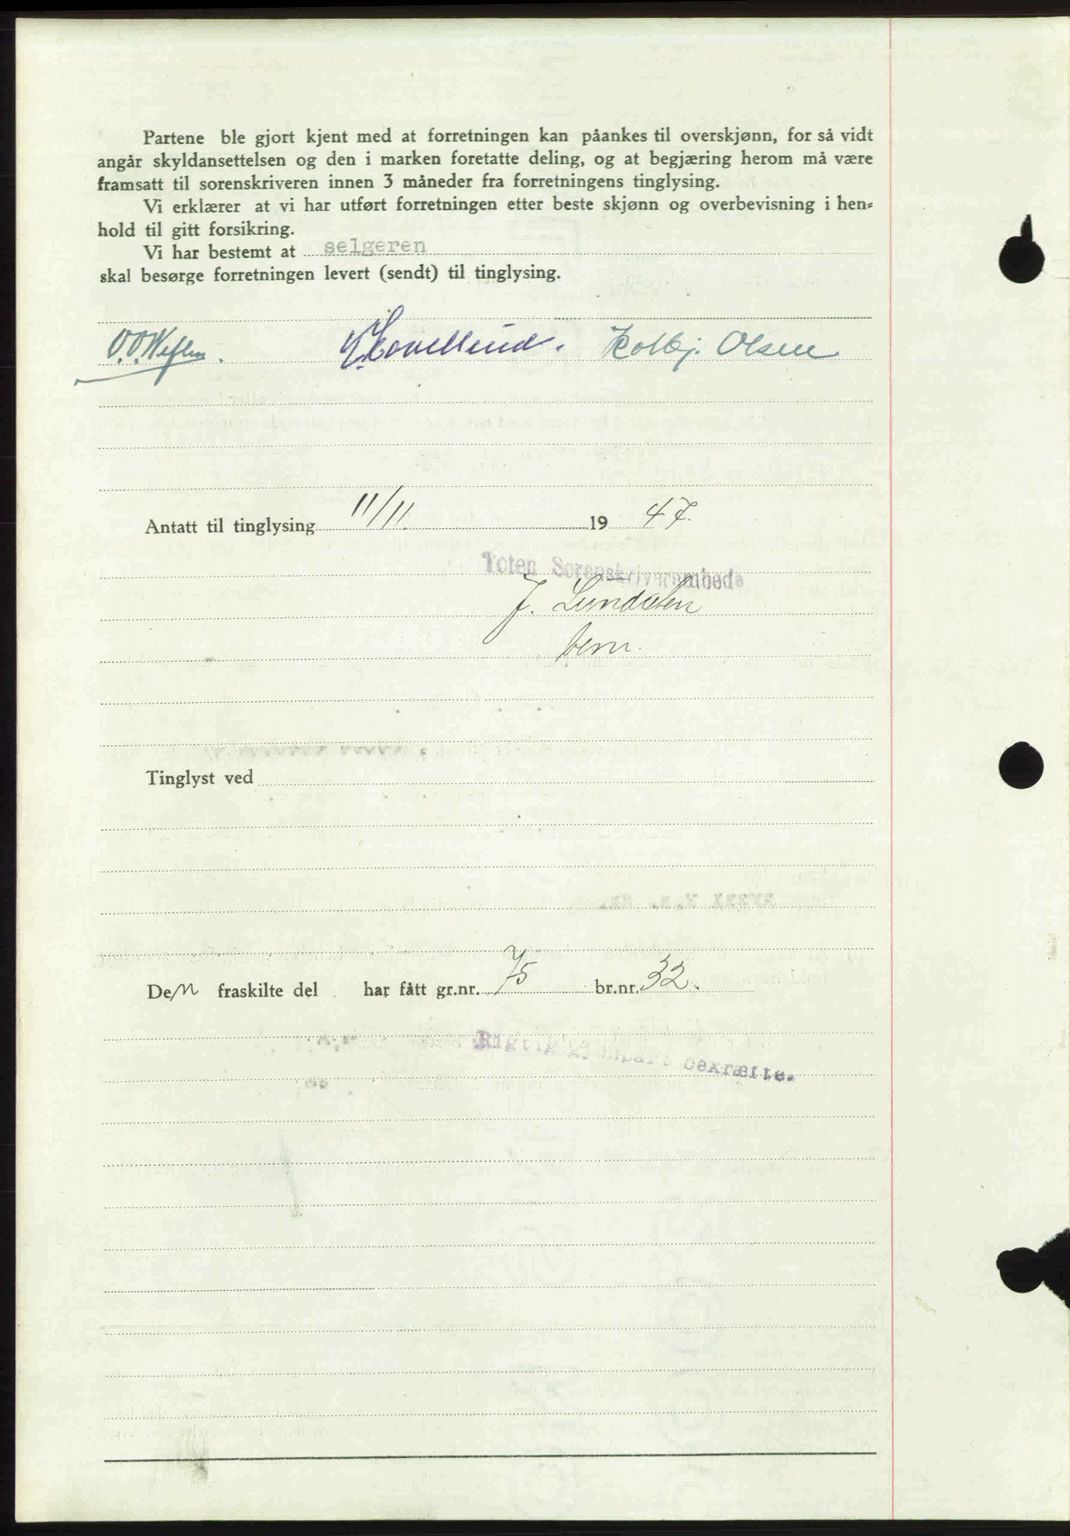 Partene ble gjort kjent med at forretningen kan påankes til overskjønn, for så vidt
angår skyldansettelsen og den i marken foretatte deling, og at begjæring herom må være
framsatt til sorenskriveren innen 3 måneder fra forretningens tinglysing.
Vi erklærer at vi har utført forretningen etter beste skjønn og overbevisning i hen-
hold til gitt forsikring.
Vi har bestemt at selgeren
skal besørge forretningen levert (sendt) til tinglysing.
Kolbj. Olsen
Antatt til tinglysing 11/11. 19 47.
Toten Sorenskriverembede
J. Lundsten
Tinglyst ved
Den fraskilte del har fått gr.nr. 75 br.nr. 32.
Rigtig gjenpart bekræfte.